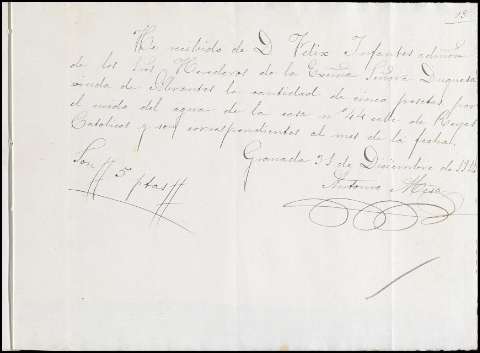 13
He recibido de D. Felix Infantes admon
de los Sres Herederos de la Excma Señora Duquesa
viuda de Abrantes la cantidad de cinco pesetas por
el cuido del agua de la casa nº 44 calle de Reyes
Catolicos y son correspondientes al mes de la fecha.
Granada 31 de Diciembre de
Son # 5 ptas #
Antonio Mesa